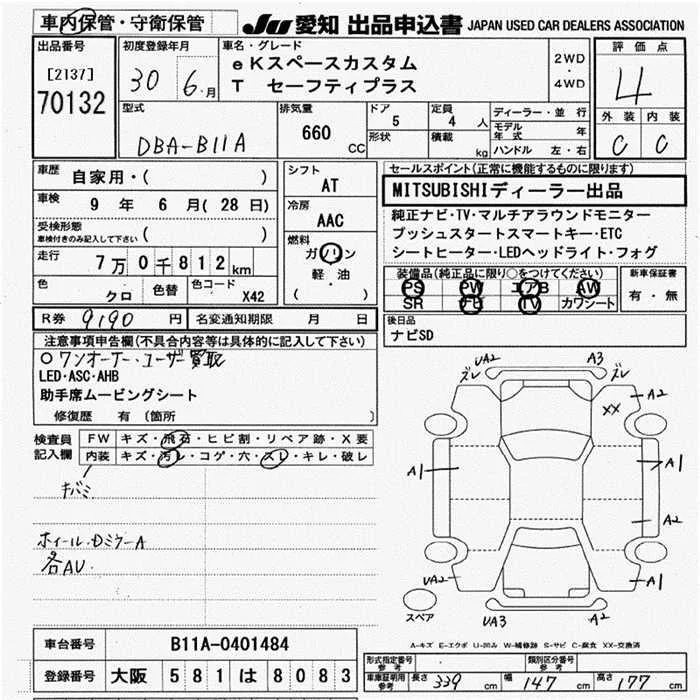 車内保管・守衛保管
JU 愛知 出品申込書 JAPAN USED CAR DEALERS ASSOCIATION
出品番号
[2137]
70132
初度登録年月
30 6 月
車名・グレード
eKスペースカスタム
T セーフティプラス
2WD
・
4WD
評価点
4
外装 内装
C C
型式
DBA-B11A
排気量
660 CC
ドア
5
形状
定員
4 人
積載
kg
ディーラー・並行
モデル年式 年
ハンドル 左・右
車歴
自家用・( )
車検
9 年 6 月( 28 日)
受検形態
車検付きのみ記入して下さい ( )
走行
7万0千812km
色
クロ
色替
色コード
X42
シフト
AT
冷房
AAC
燃料
ガソリン
軽・油
( )
R券 9190 円
名変通知期限 月 日
セールスポイント(正常に機能するものに限ります)
MITSUBISHIディーラー出品
純正ナビ・TV・マルチアラウンドモニター
プッシュスタートスマートキー・ETC
シートヒーター・LEDヘッドライト・フォグ
装備品(純正品に限り○をつけてください)
PS PW エアB AW
SR ナビ TV カワシート
新車保証書
有・無
後日品
ナビSD
注意事項申告欄(不具合内容等は具体的に記入して下さい)
○ワンオーナー、ユーザー買取
LED・ASC・AHB
助手席ムービングシート
修復歴 有 〔箇所
検査員
記入欄
FW キズ・飛石・ヒビ割・リペア跡・X要
内装 キズ・汚レ・コゲ・穴・スレ・キレ・破レ
キバミ
ホイール・DミラーA
各AU
UA2 A3
ズレ ズレ
A2
XX
A1 A1
A2
UA2 A1
スペア
UA3 A2
A-キズ E-エクボ U-凹み W-補修跡 S-サビ C-腐食 XX-交換済
車台番号 B11A-0401484
登録番号 大阪 581 は 8083
形式指定番号
参考
類別区分番号
参考
車庫証明用
参考
長さ 339 cm
幅 147 cm
高さ 177 cm